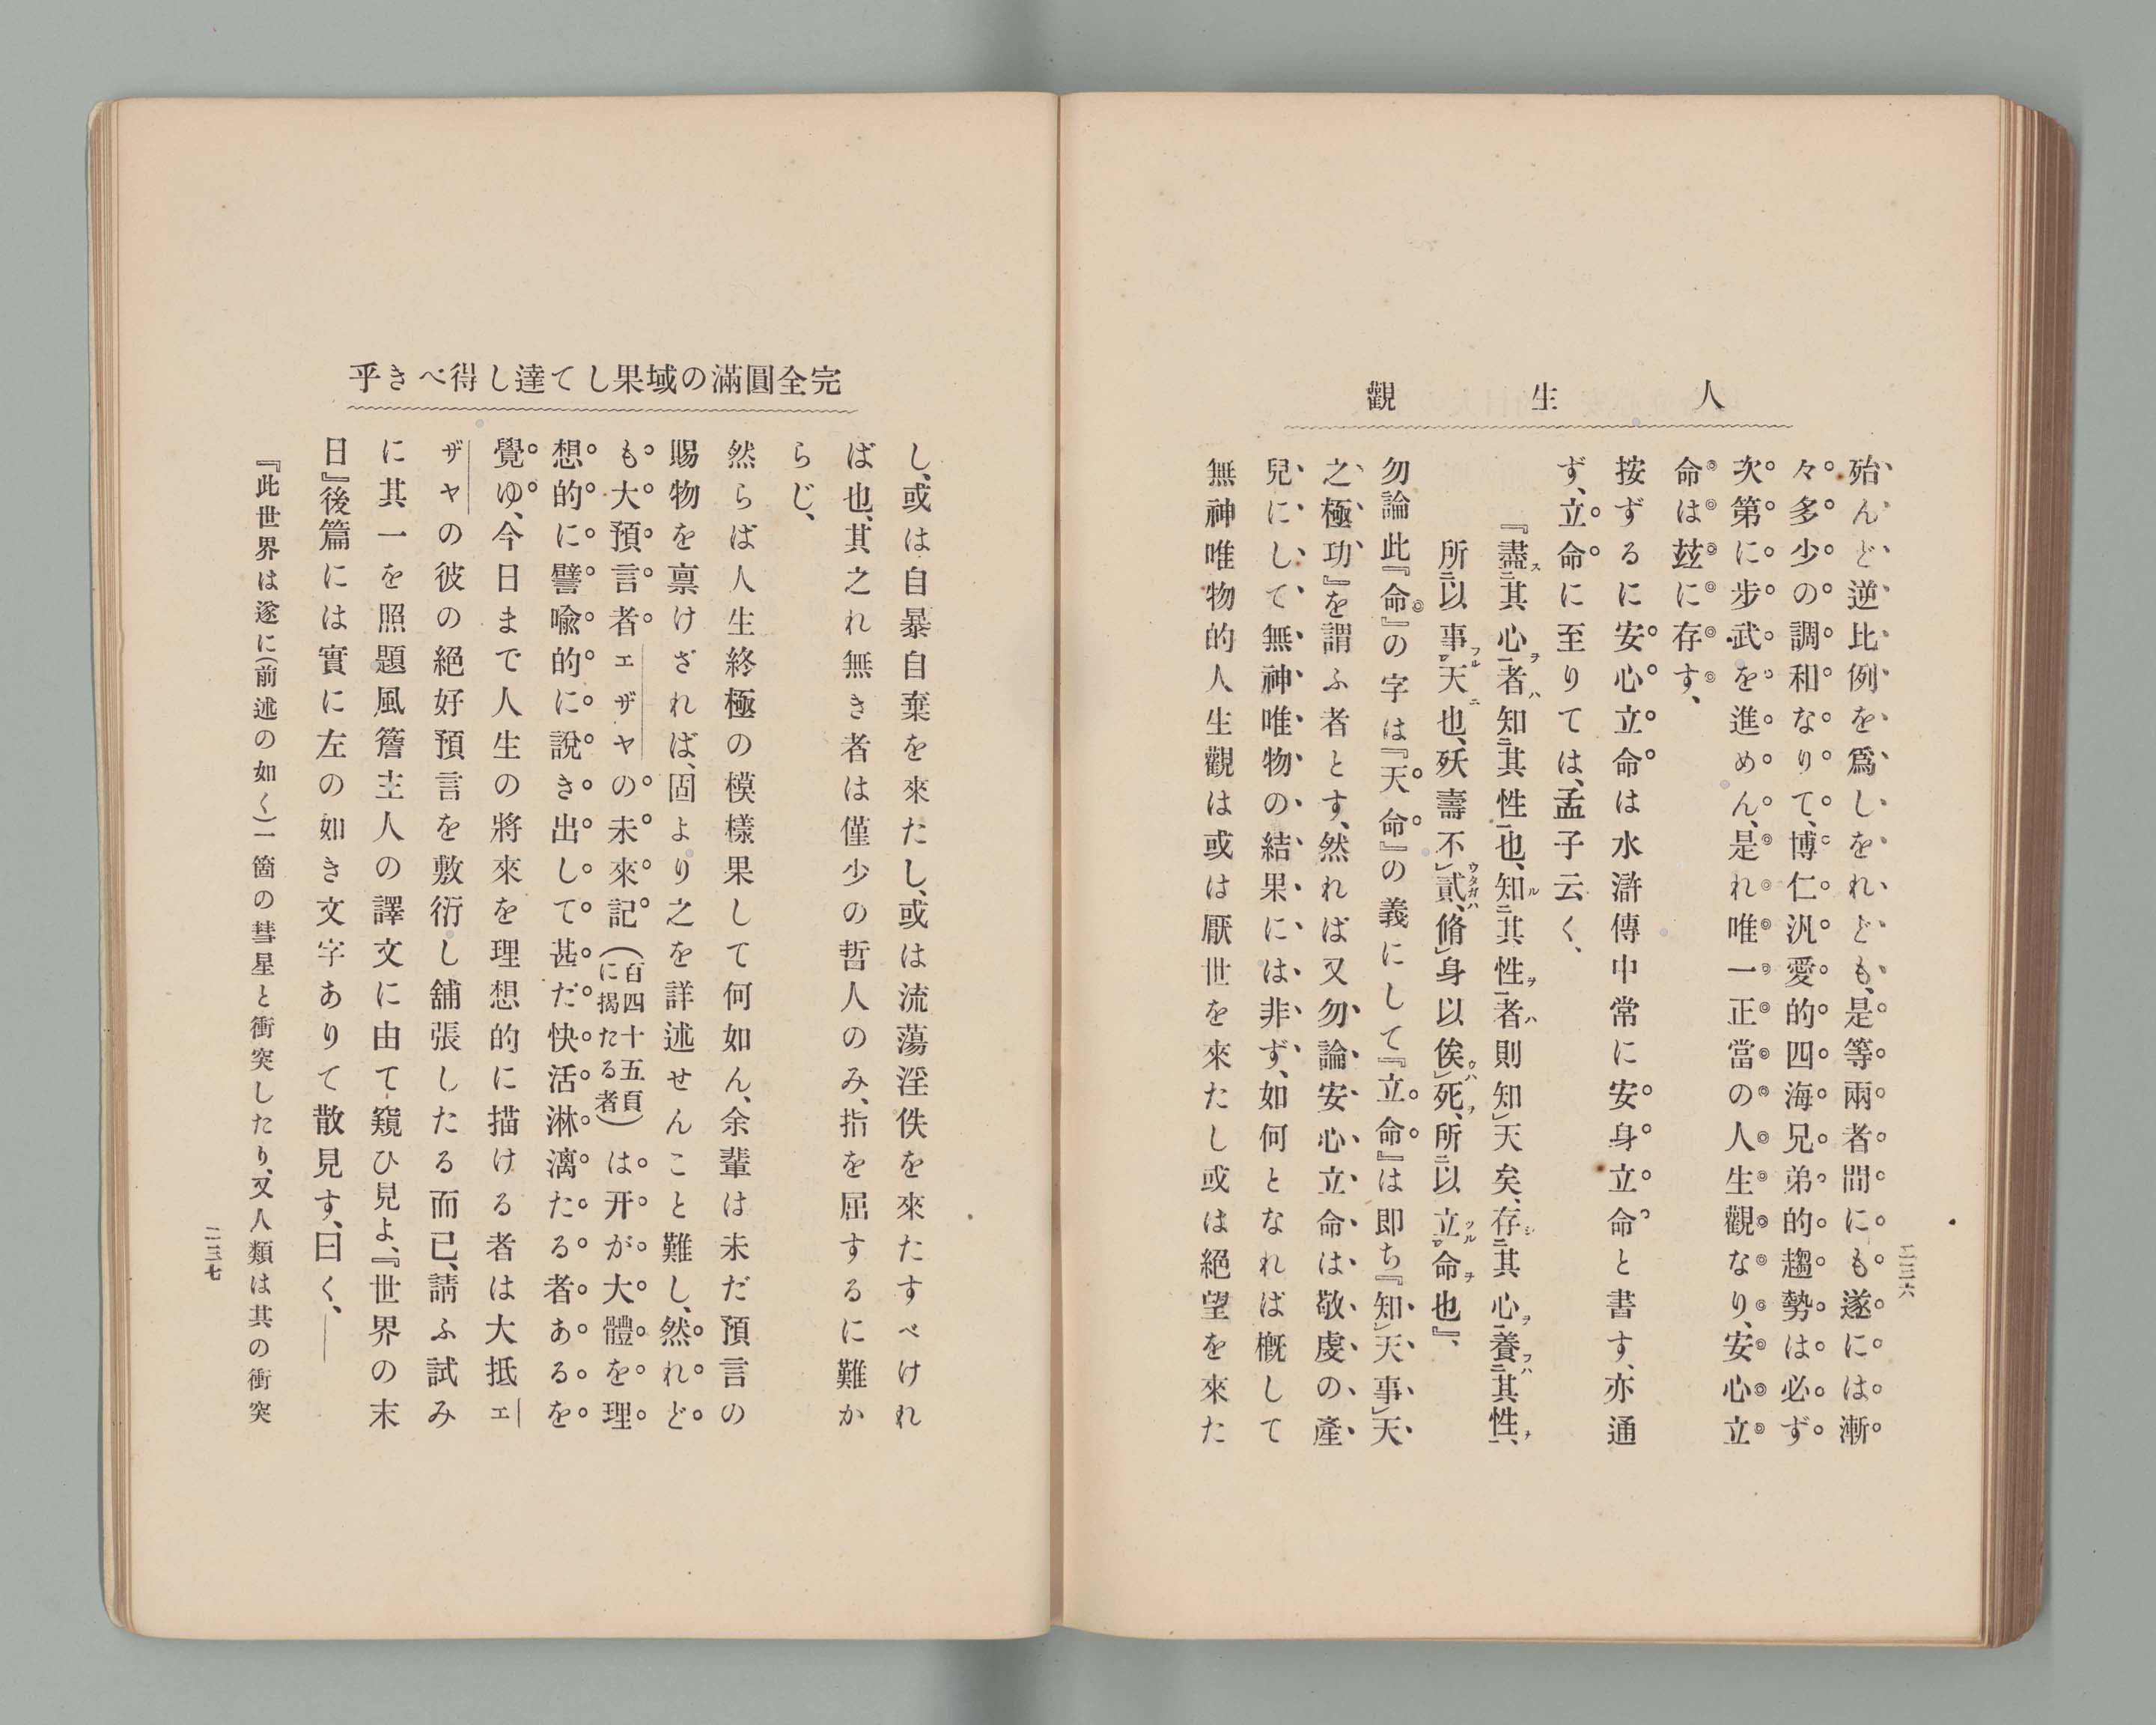 人生觀
二三六
殆んど逆比例を爲しをれども、是等兩者間にも遂には漸
々多少の調和なりて、博仁汎愛的四海兄弟的趨勢は必ず
次第に步武を進めん、是れ唯一正當の人生觀なり、安心立
命は玆に存す、
按ずるに安心立命は水滸傳中常に安身立命と書す、亦通
ず、立命に至りては、孟子云く、
『盡ス二其心ヲ一者ハ知二其性一也、知ル二其性ヲ一者ハ則知レ天矣、存シ二其心ヲ一養フハ二其性ヲ一、
所三以事フル二天ニ一也、殀壽不レ貳ウタガハ、脩レ身以俟ツハレ死ヲ、所三以立ツル二命ヲ一也』、
勿論此『命』の字は『天命』の義にして『立命』は卽ち『知レ天、事レ天、
之極功』を謂ふ者とす、然れば又勿論安心立命は敬虔の產
兒にして無神唯物の結果には非ず、如何となれば槪して
無神唯物的人生觀は或は厭世を來たし或は絕望を來た
完全圓滿の域果して達し得べき乎
し、或は自暴自棄を來たし、或は流蕩淫佚を來たすべけれ
ば也、其之れ無き者は僅少の哲人のみ、指を屈するに難か
らじ、
然らば人生終極の模樣果して何如ん、余輩は未だ預言の
賜物を稟けざれば、固より之を詳述せんこと難し、然れど
も大預言者エザヤの未來記(百四十五頁に揭たる者)は开が大體を理
想的に譬喩的に說き出して甚だ快活淋漓たる者あるを
覺ゆ、今日まで人生の將來を理想的に描ける者は大抵エ
ザヤの彼の絕好預言を敷衍し舖張したる而已、請ふ試み
に其一を照題風簷主人の譯文に由て窺ひ見よ、『世界の末
日』後篇には實に左の如き文字ありて散見す、曰く、――
『此世界は遂に(前述の如く)一箇の彗星と衝突したり、又人類は其の衝突
二三七